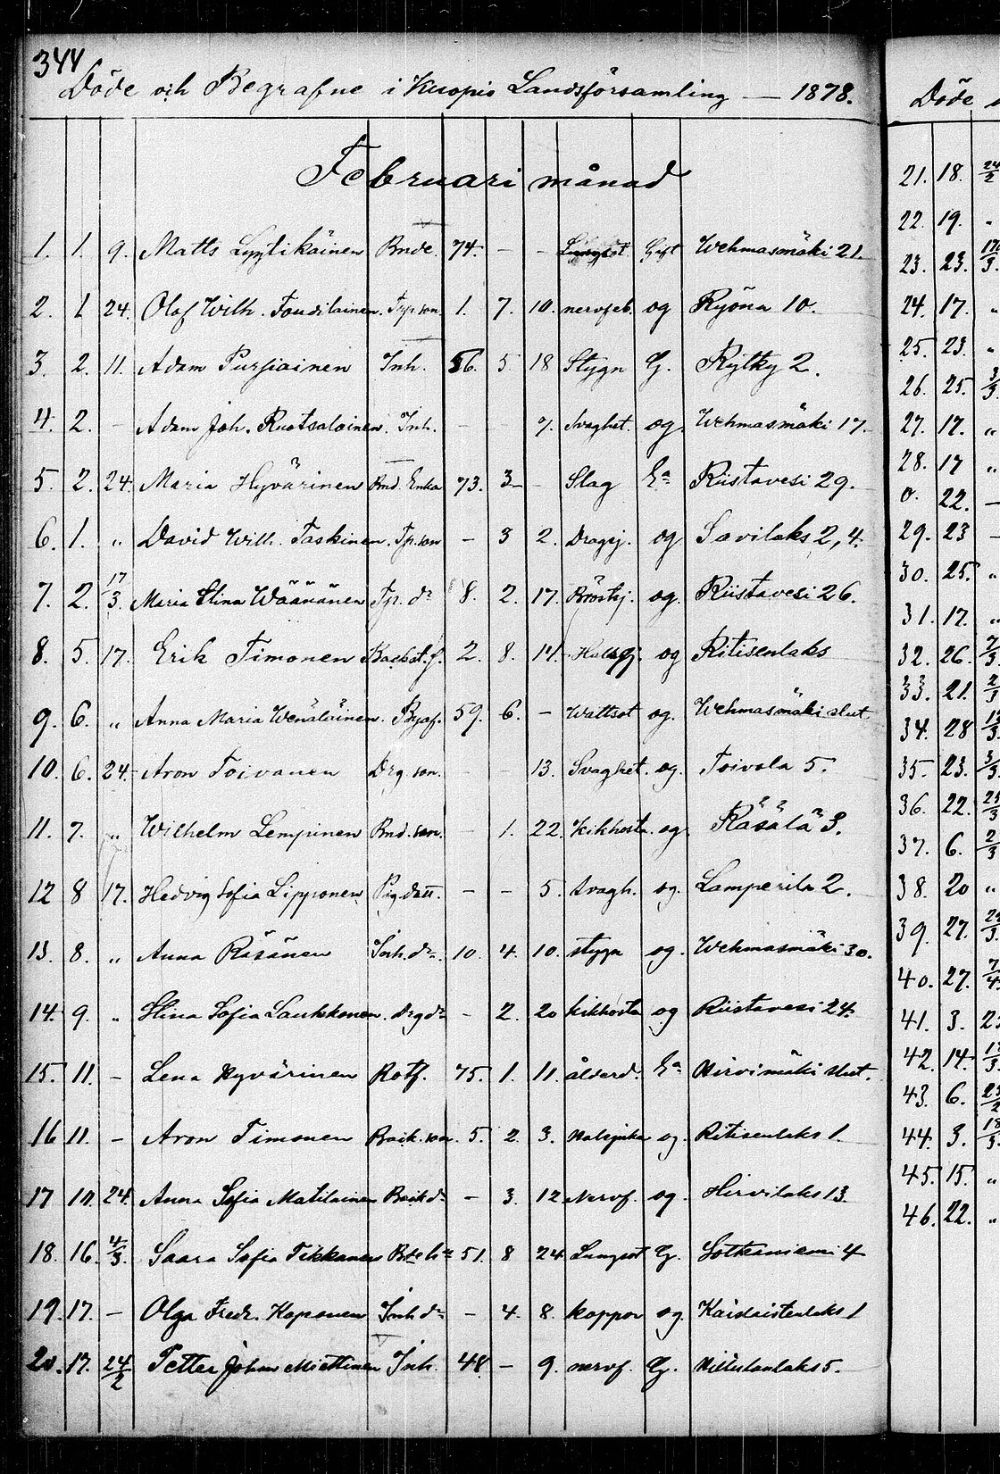 344
Döde och Begrafne i Kuopio Landsförsamling — 1878.
Februari månad
1. 1. 9. Matts Lyytikäinen Bnde 74. - - Lungsot Gift Wehmasmäki 21.
2. 1 24. Olof Wilh. Tondilainen. Trp son 1. 7. 10. nervfeb. og Ryöna 10.
3. 2. 11. Adam Pursiainen Inh. 56. 5 18 Stygn G. Kytky 2.
4. 2. - Adam Joh. Ruotsalainen. Inh. - - 7. Svaghet. og. Wehmasmäki 17.
5. 2. 24. Maria Hyvärinen Bnd. Enka 73. 3 - Slag Ea Riistavesi 29.
6. 1. „ David Wilh. Taskinen. Tp. son - 3 2. Dragsj. og Savilaks 2, 4.
7. 2. 17/3. Maria Elina Wäänänen Tp. dr 8. 2. 17. Bröstsj. og. Riistavesi 26.
8. 5. 17. Erik Timonen 2. 8. 14. Halssj. og Ritisenlaks
9. 6. „ Anna Maria Wenäläinen. 59. 6. - Wattsot og. Wehmasmäki slut.
10. 6. 24. Aron Toivanen Drg. son. - - 13. Svaghet. og. Toivola 5.
11. 7. „ Wilhelm Lempinen Bnd. son. - 1. 22. Kikhosta og Räsälä 3.
12 8 17. Hedvig Sofia Lipponen Pig. dott. - - 5. svagh. og. Lamperila 2.
13. 8. „ Anna Räsänen Inh. dr. 10. 4. 10. stygn og. Wehmasmäki 30.
14. 9. „ Elina Sofia Laukkanen. Drg dr - 2. 20 kikhosta og Riistavesi 24.
15. 11. - Lena Hyvärinen Rotf. 75. 1. 11. ålderd. Ea Hirvimäki slut.
16 11. - Aron Timonen Back. son. 5. 2. 3. Halsjuka og. Ritisenlaks 1.
17 10. 24. Anna Sofia Matilainen Back dr - 3. 12 Nervf. og. Hirvilaks 13.
18. 16. 4/3. Saara Sofia Tikkanen 51. 8 24 Lungsot G. Sotkanniemi 4
19. 17. - Olga Fredr. Koponen Inh dr - 4. 8. koppor og Kaislastenlaks 1
20. 17. 24/2 Petter Johan Miettinen Inh. 48. - 9. nervf. G. Niittulanlaks 5.
Döde
21. 18. 24/2
22. 19. „
23. 23. 17/3.
24. 17. „
25. 23. „
26. 25. 3/3.
27. 17. „
28. 17 „
0. 22. -
29. 23 -
30. 25. „
31. 17. „
32. 26.
33. 21. 2/3
34. 28
35. 23. 3/3.
36. 22.
37. 6. 2/3
38. 20 „
39. 27.
40. 27. 7/4.
41. 3.
42. 14.
43. 6.
44. 3.
45. 15. „
46. 22. „